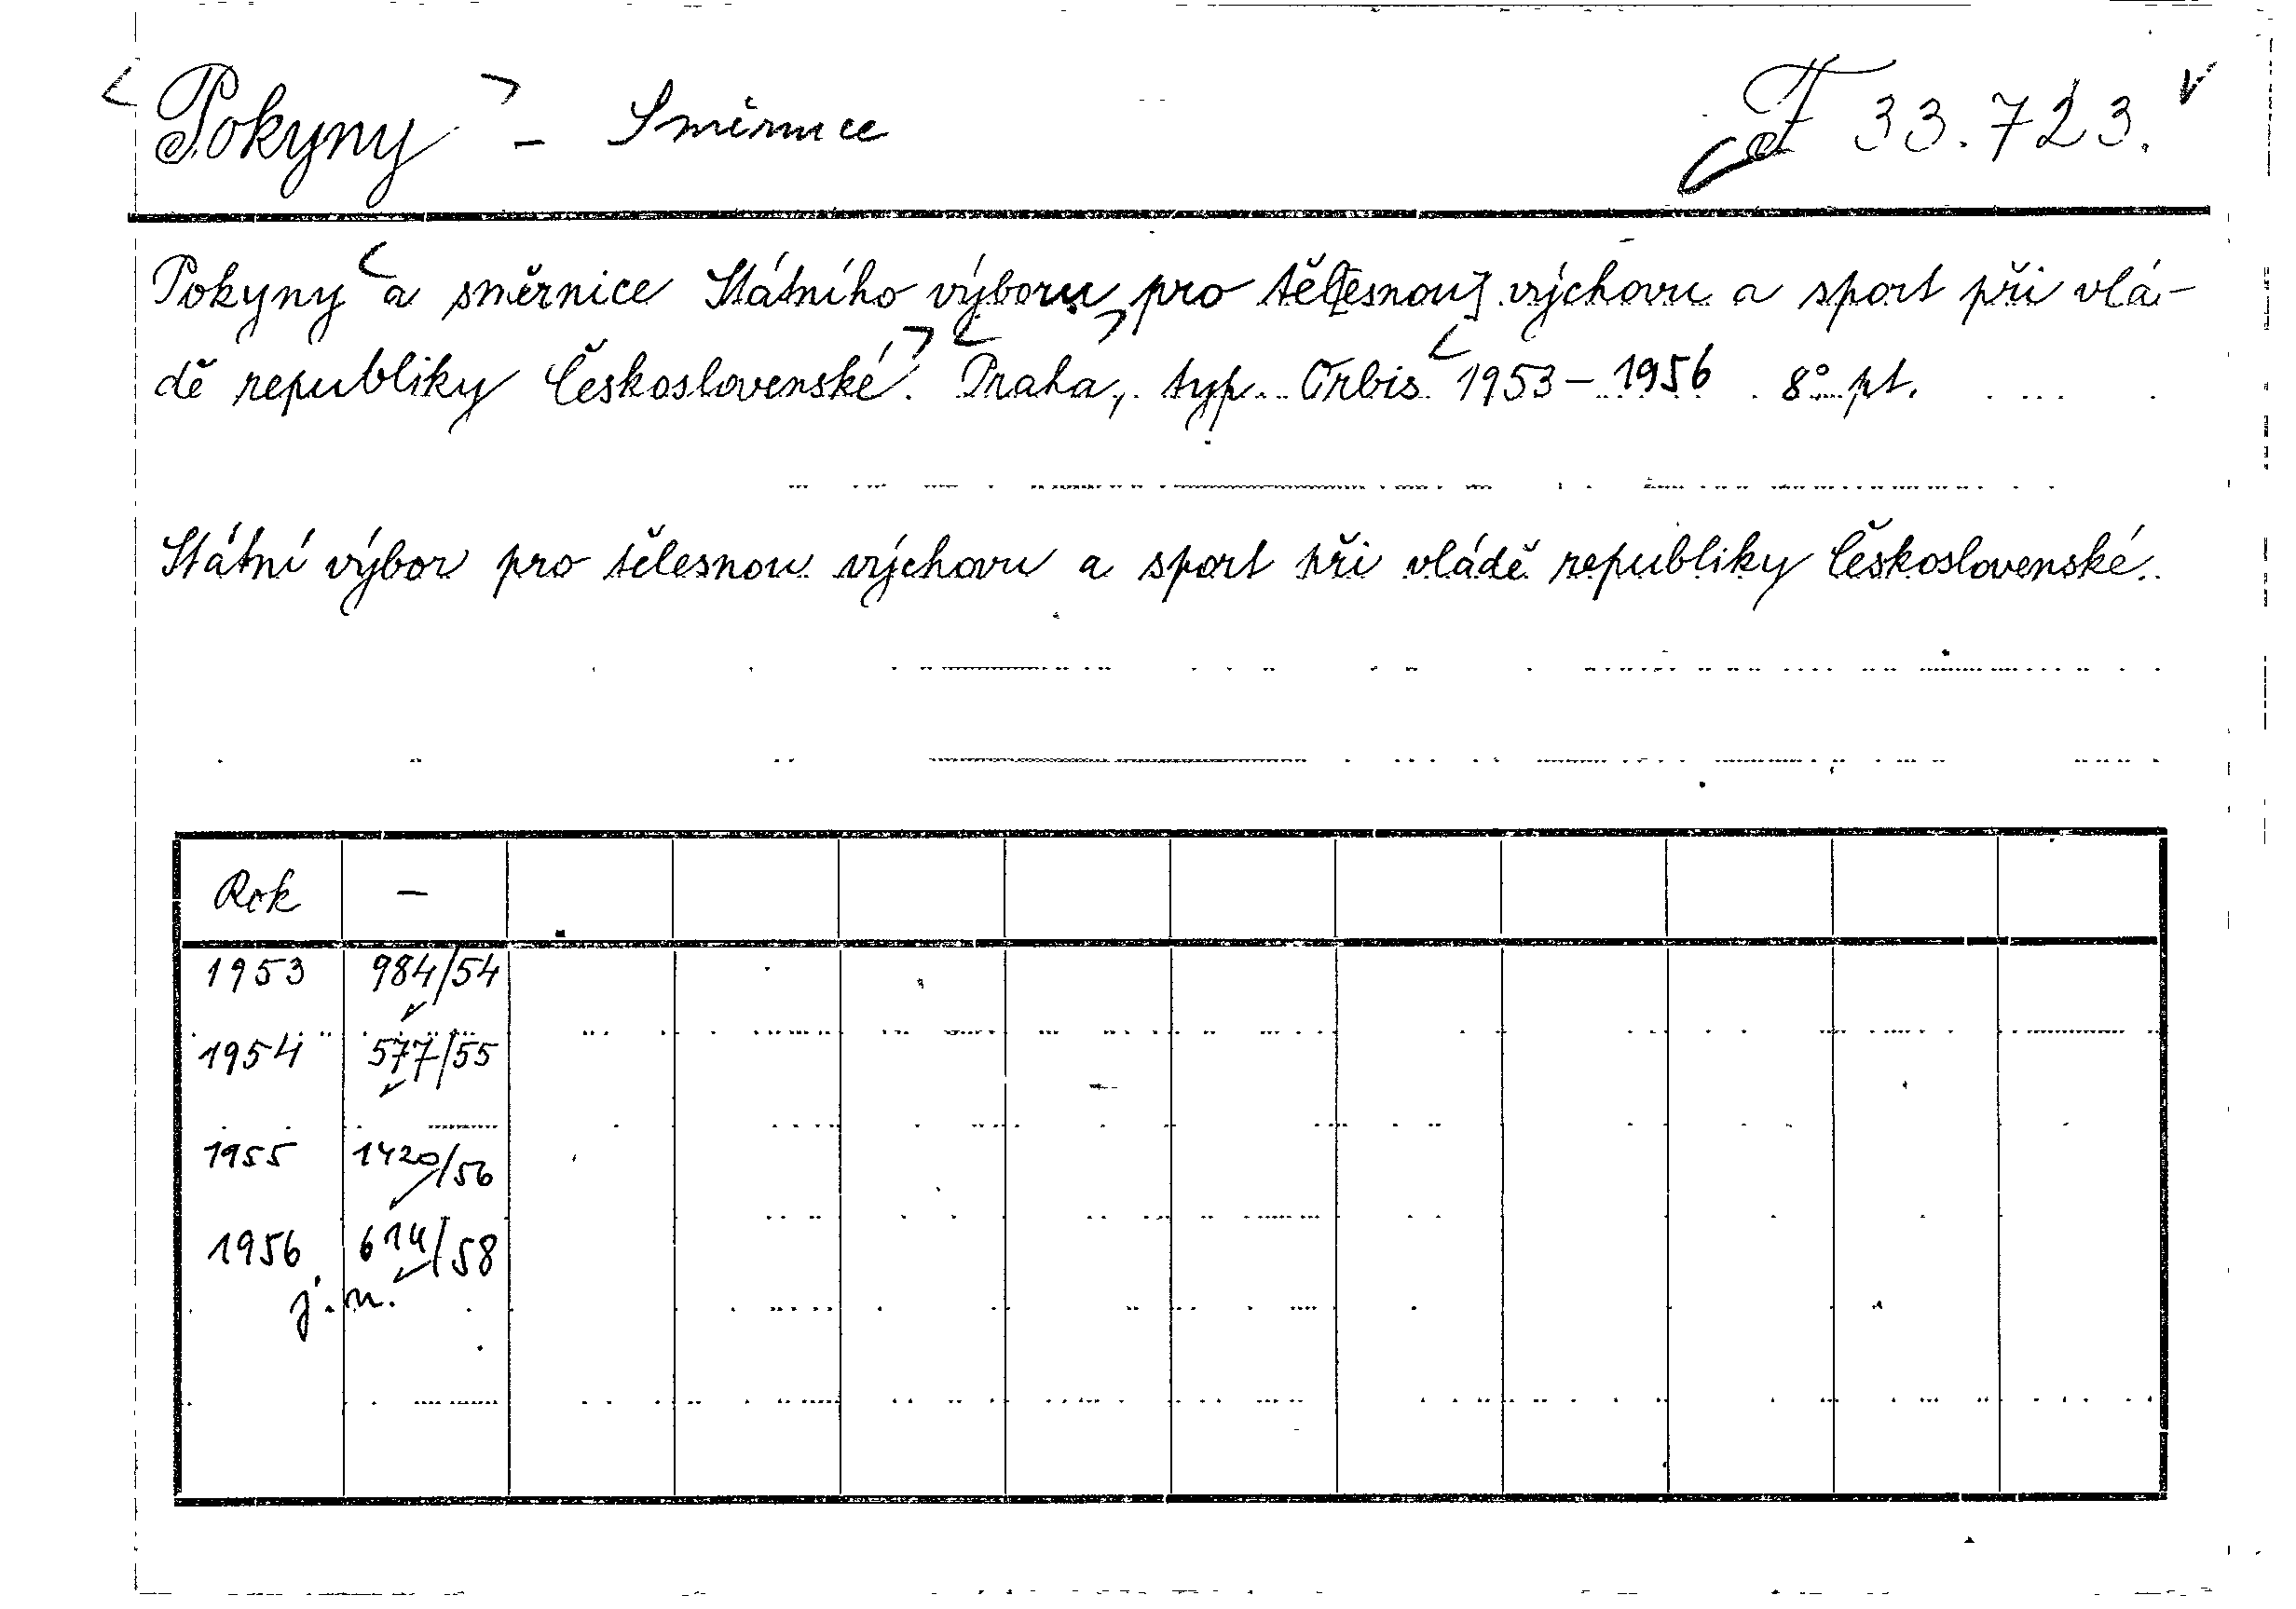 <Pokyny> - Směrnice F 33.723.
Pokyny <a směrnice Státního výboru pro těl[esnou] výchovu a sport při vlá-
dě republiky Československé>. <Praha>, typ. Orbis <1953-1956 8° pt.
Státní výbor pro tělesnou výchovu a sport při vládě republiky Československé.
Rok -
1953 984/54
1954 577/55
1955 1420/56
1956 614/58
j. n.